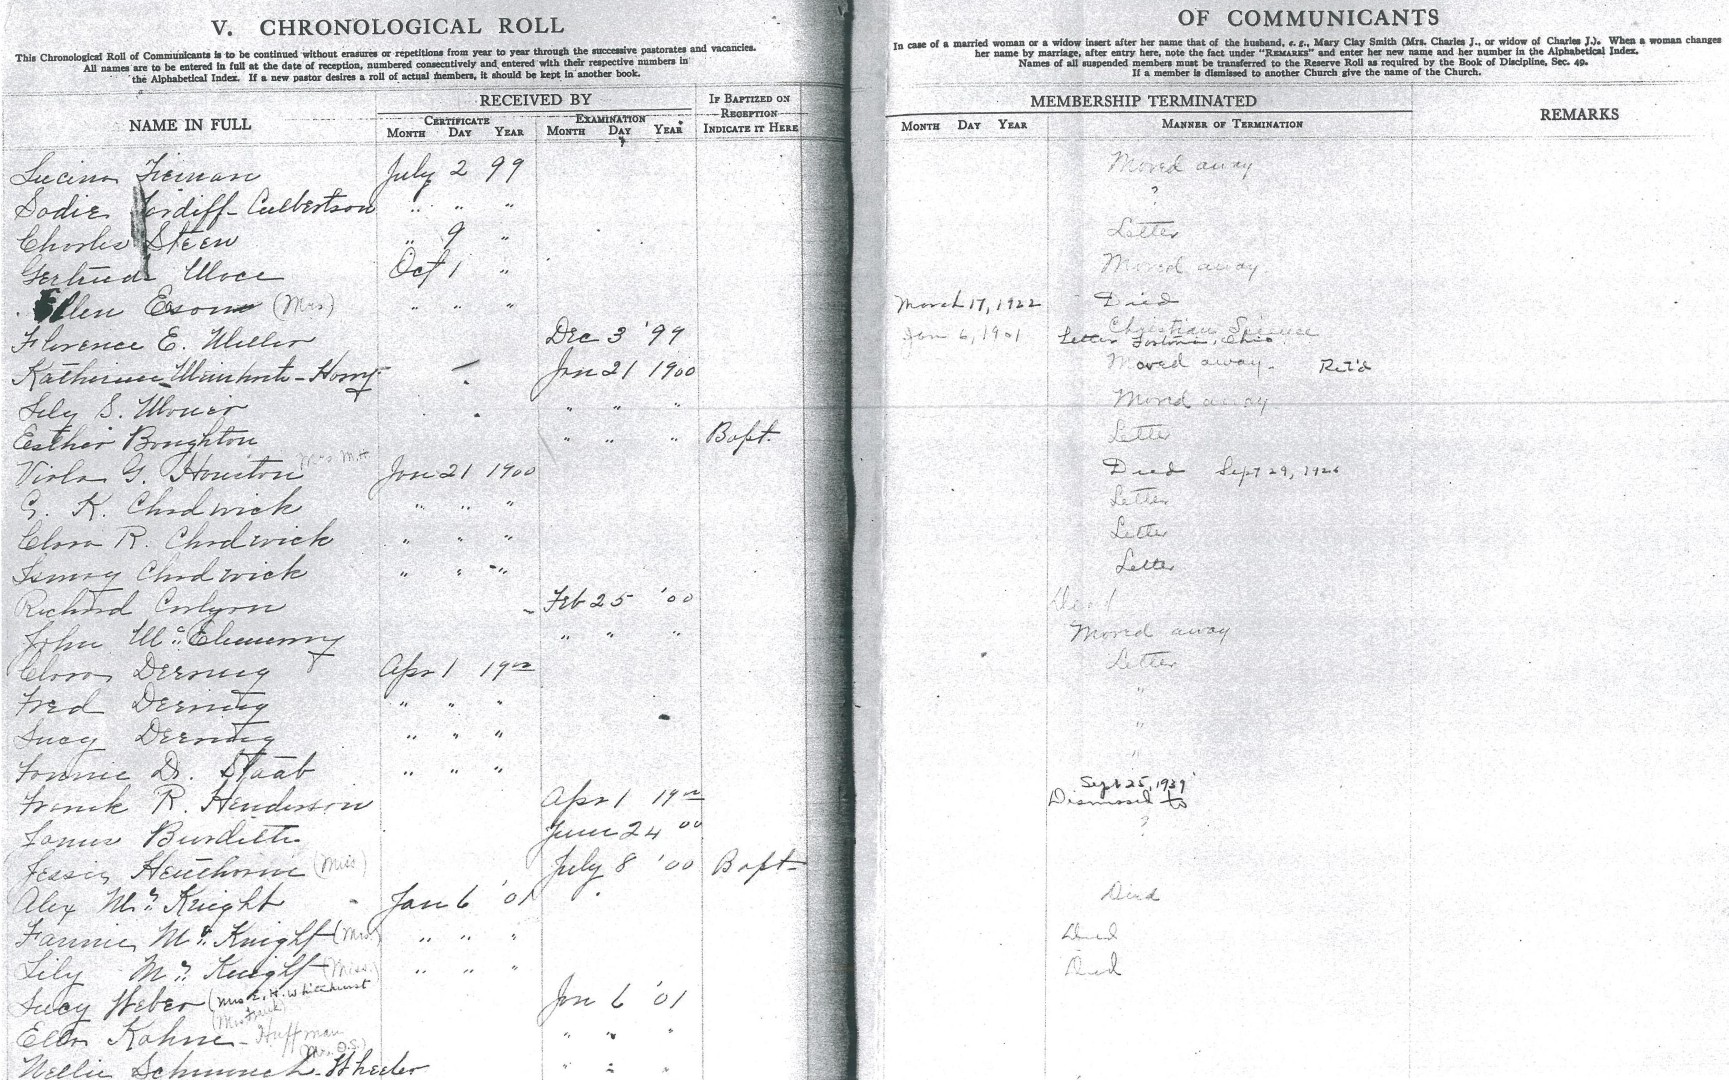 V. CHRONOLOGICAL ROLL
This Chronological Roll of Communicants is to be continued without erasures or repetitions from year to year through the successive pastorates and vacancies.
All names are to be entered in full at the date of reception, numbered consecutively and entered with their respective numbers in
the Alphabetical Index. If a new pastor desires a roll of actual members, it should be kept in another book.
OF COMMUNICANTS
In case of a married woman or a widow insert after her name that of the husband, e. g., Mary Clay Smith (Mrs. Charles J., or widow of Charles J.). When a woman changes
her name by marriage, after entry here, note the fact under "REMARKS" and enter her new name and her number in the Alphabetical Index.
Names of all suspended members must be transferred to the Reserve Roll as required by the Book of Discipline, Sec. 49.
If a member is dismissed to another Church give the name of the Church.
NAME IN FULL RECEIVED BY IF BAPTIZED ON RECEPTION INDICATE IT HERE MEMBERSHIP TERMINATED REMARKS
CERTIFICATE EXAMINATION
MONTH DAY YEAR MONTH DAY YEAR MONTH DAY YEAR MANNER OF TERMINATION
July 2 99 Moved away
Sadie Culbertson " " " ?
Charles Steen " 9 " Letter
Gertrude Oct 1 " Moved away
Ellen (Mrs) " " " March 17, 1922 Died
Florence E. Dec 3 '99 Jan 6, 1901 Christian Science
Letter Ohio
Katherine Jan 21 1900 Moved away. Ret'd
S. " " " Moved away
Esther Boughton " " " Bapt. Letter
Viola G. Houston Mrs. M.H. Jan 21 1900 Died Sept 29, 1926
G. K. Chadwick " " " Letter
Clara R. Chadwick " " " Letter
Chadwick " " " Letter
Richard Feb 25 '00 Dead
John " " " Moved away
Clara Deming Apr 1 1900 Letter
Fred Deming " " " "
Lucy Deming " " " "
D. Staab " " " "
Frank R. Henderson Apr 1 1900 Sept 25, 1939
Dismissed to
Burdette June 24 00 ?
Jessie Henthorne (Miss) July 8 '00 Bapt
Alex McKnight Jan 6 '01 Died
Fannie McKnight (Mrs.) " " " Died
Lily McKnight (Miss.) " " " Died
Lucy Weber (Mrs E. H. Whitehurst Jan 6 '01
(Mrs Frank)
Ella Kahne - Huffman " " "
(Mrs. O.S.)
Nellie Schmunch - Wheeler " " "